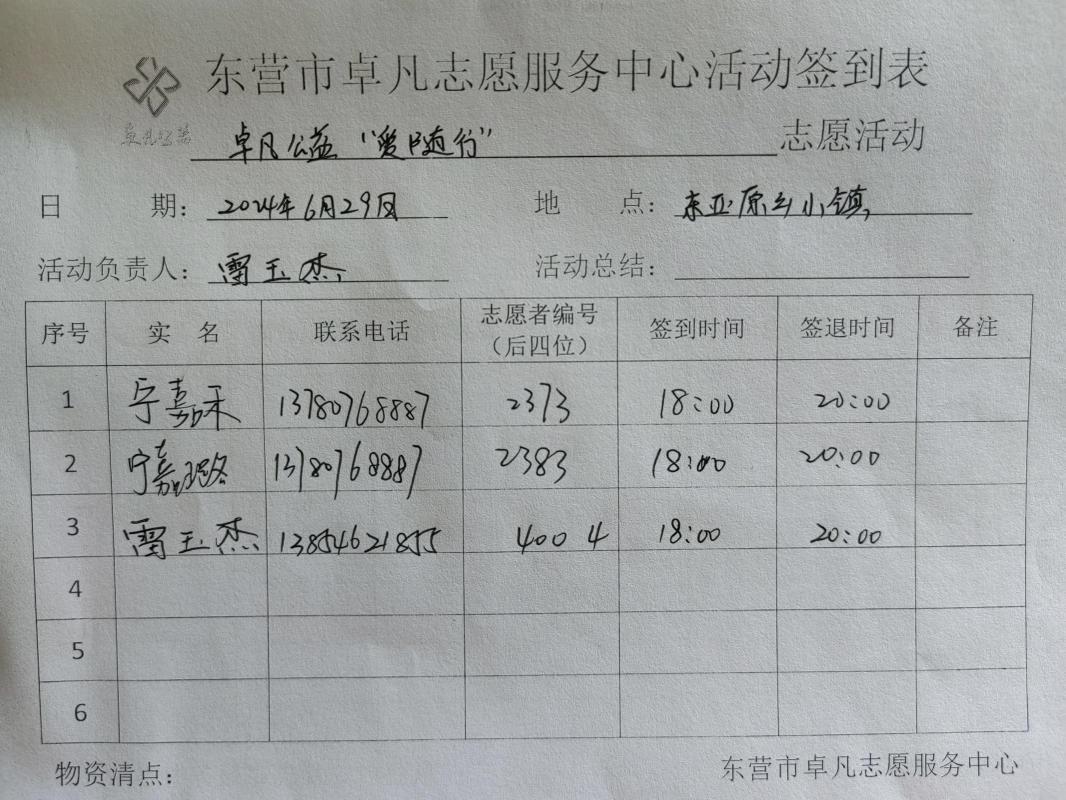 东营市卓凡志愿服务中心活动签到表
卓凡公益
卓凡公益“爱随行” 志愿活动
日 期：2024年6月29日 地 点：东亚原乡小镇
活动负责人：雷玉杰 活动总结：
序号 实 名 联系电话 志愿者编号（后四位） 签到时间 签退时间 备注
1 宁嘉禾 13780768887 2373 18:00 20:00
2 宁嘉璐 13780768887 2383 18:00 20:00
3 雷玉杰 13854621855 4004 18:00 20:00
4
5
6
物资清点： 东营市卓凡志愿服务中心